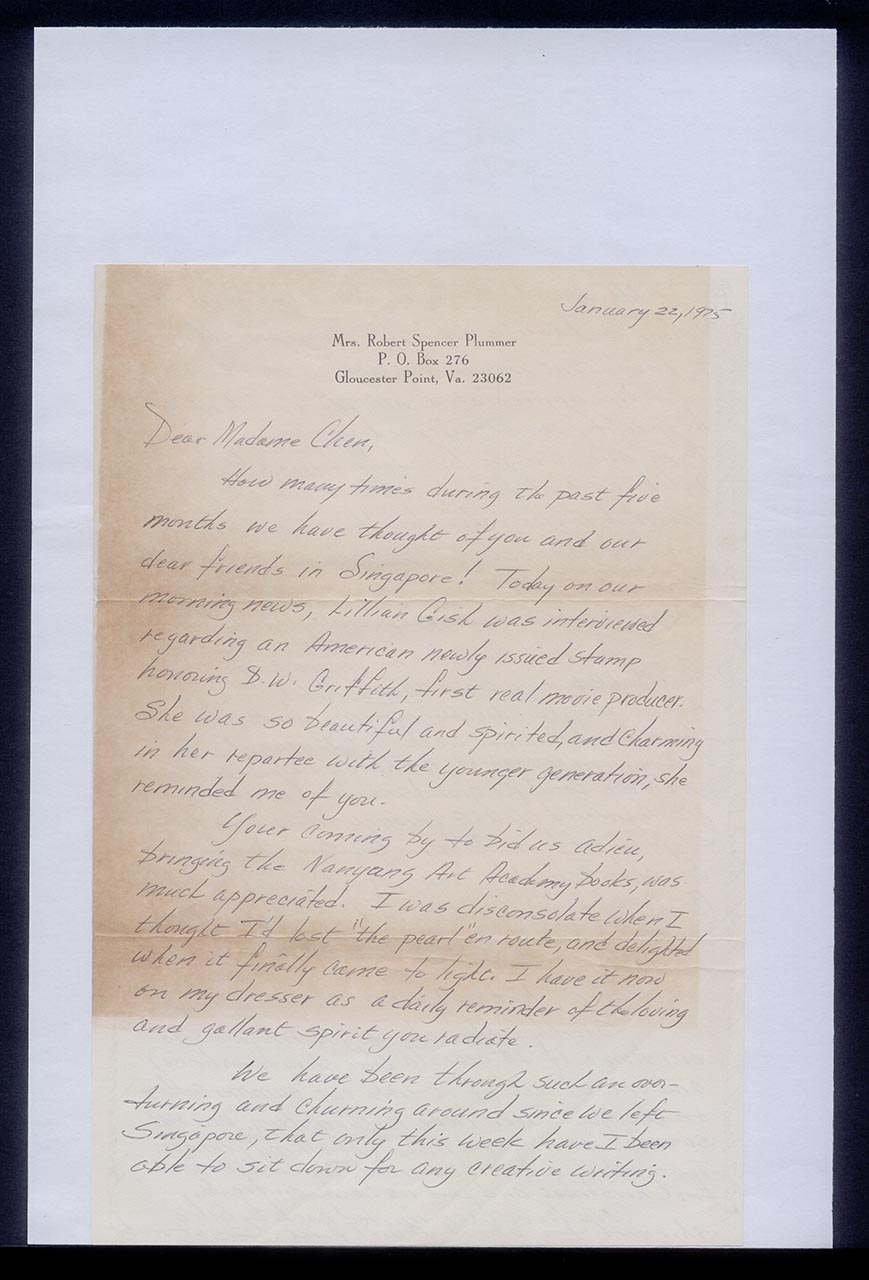 January 22, 1975
Mrs. Robert Spencer Plummer
P. O. Box 276
Gloucester Point, Va. 23062
Dear Madame Chen,
How many times during the past five
months we have thought of you and our
dear friends in Singapore! Today on our
morning news, Lillian Gish was interviewed
regarding an American newly issued stamp
honoring D.W. Griffith, first real movie producer.
She was so beautiful and spirited, and charming
in her repartee with the younger generation, she
reminded me of you.
Your coming by to bid us adieu,
bringing the Nanyang Art Academy books, was
much appreciated. I was disconsolate when I
thought I'd lost "the pearl" en route, and delighted
when it finally came to light. I have it now
on my dresser as a daily reminder of the loving
and gallant spirit you radiate.
We have been through such an over-
turning and churning around since we left
Singapore, that only this week have I been
able to sit down for any creative writing.